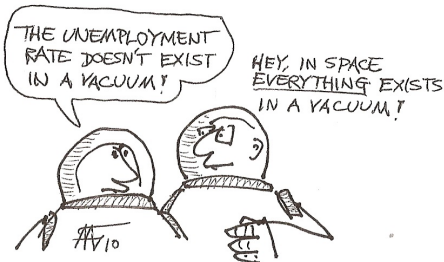 THE UNEMPLOYMENT
RATE DOESN'T EXIST
IN A VACUUM!
HEY, IN SPACE
EVERYTHING EXISTS
IN A VACUUM!